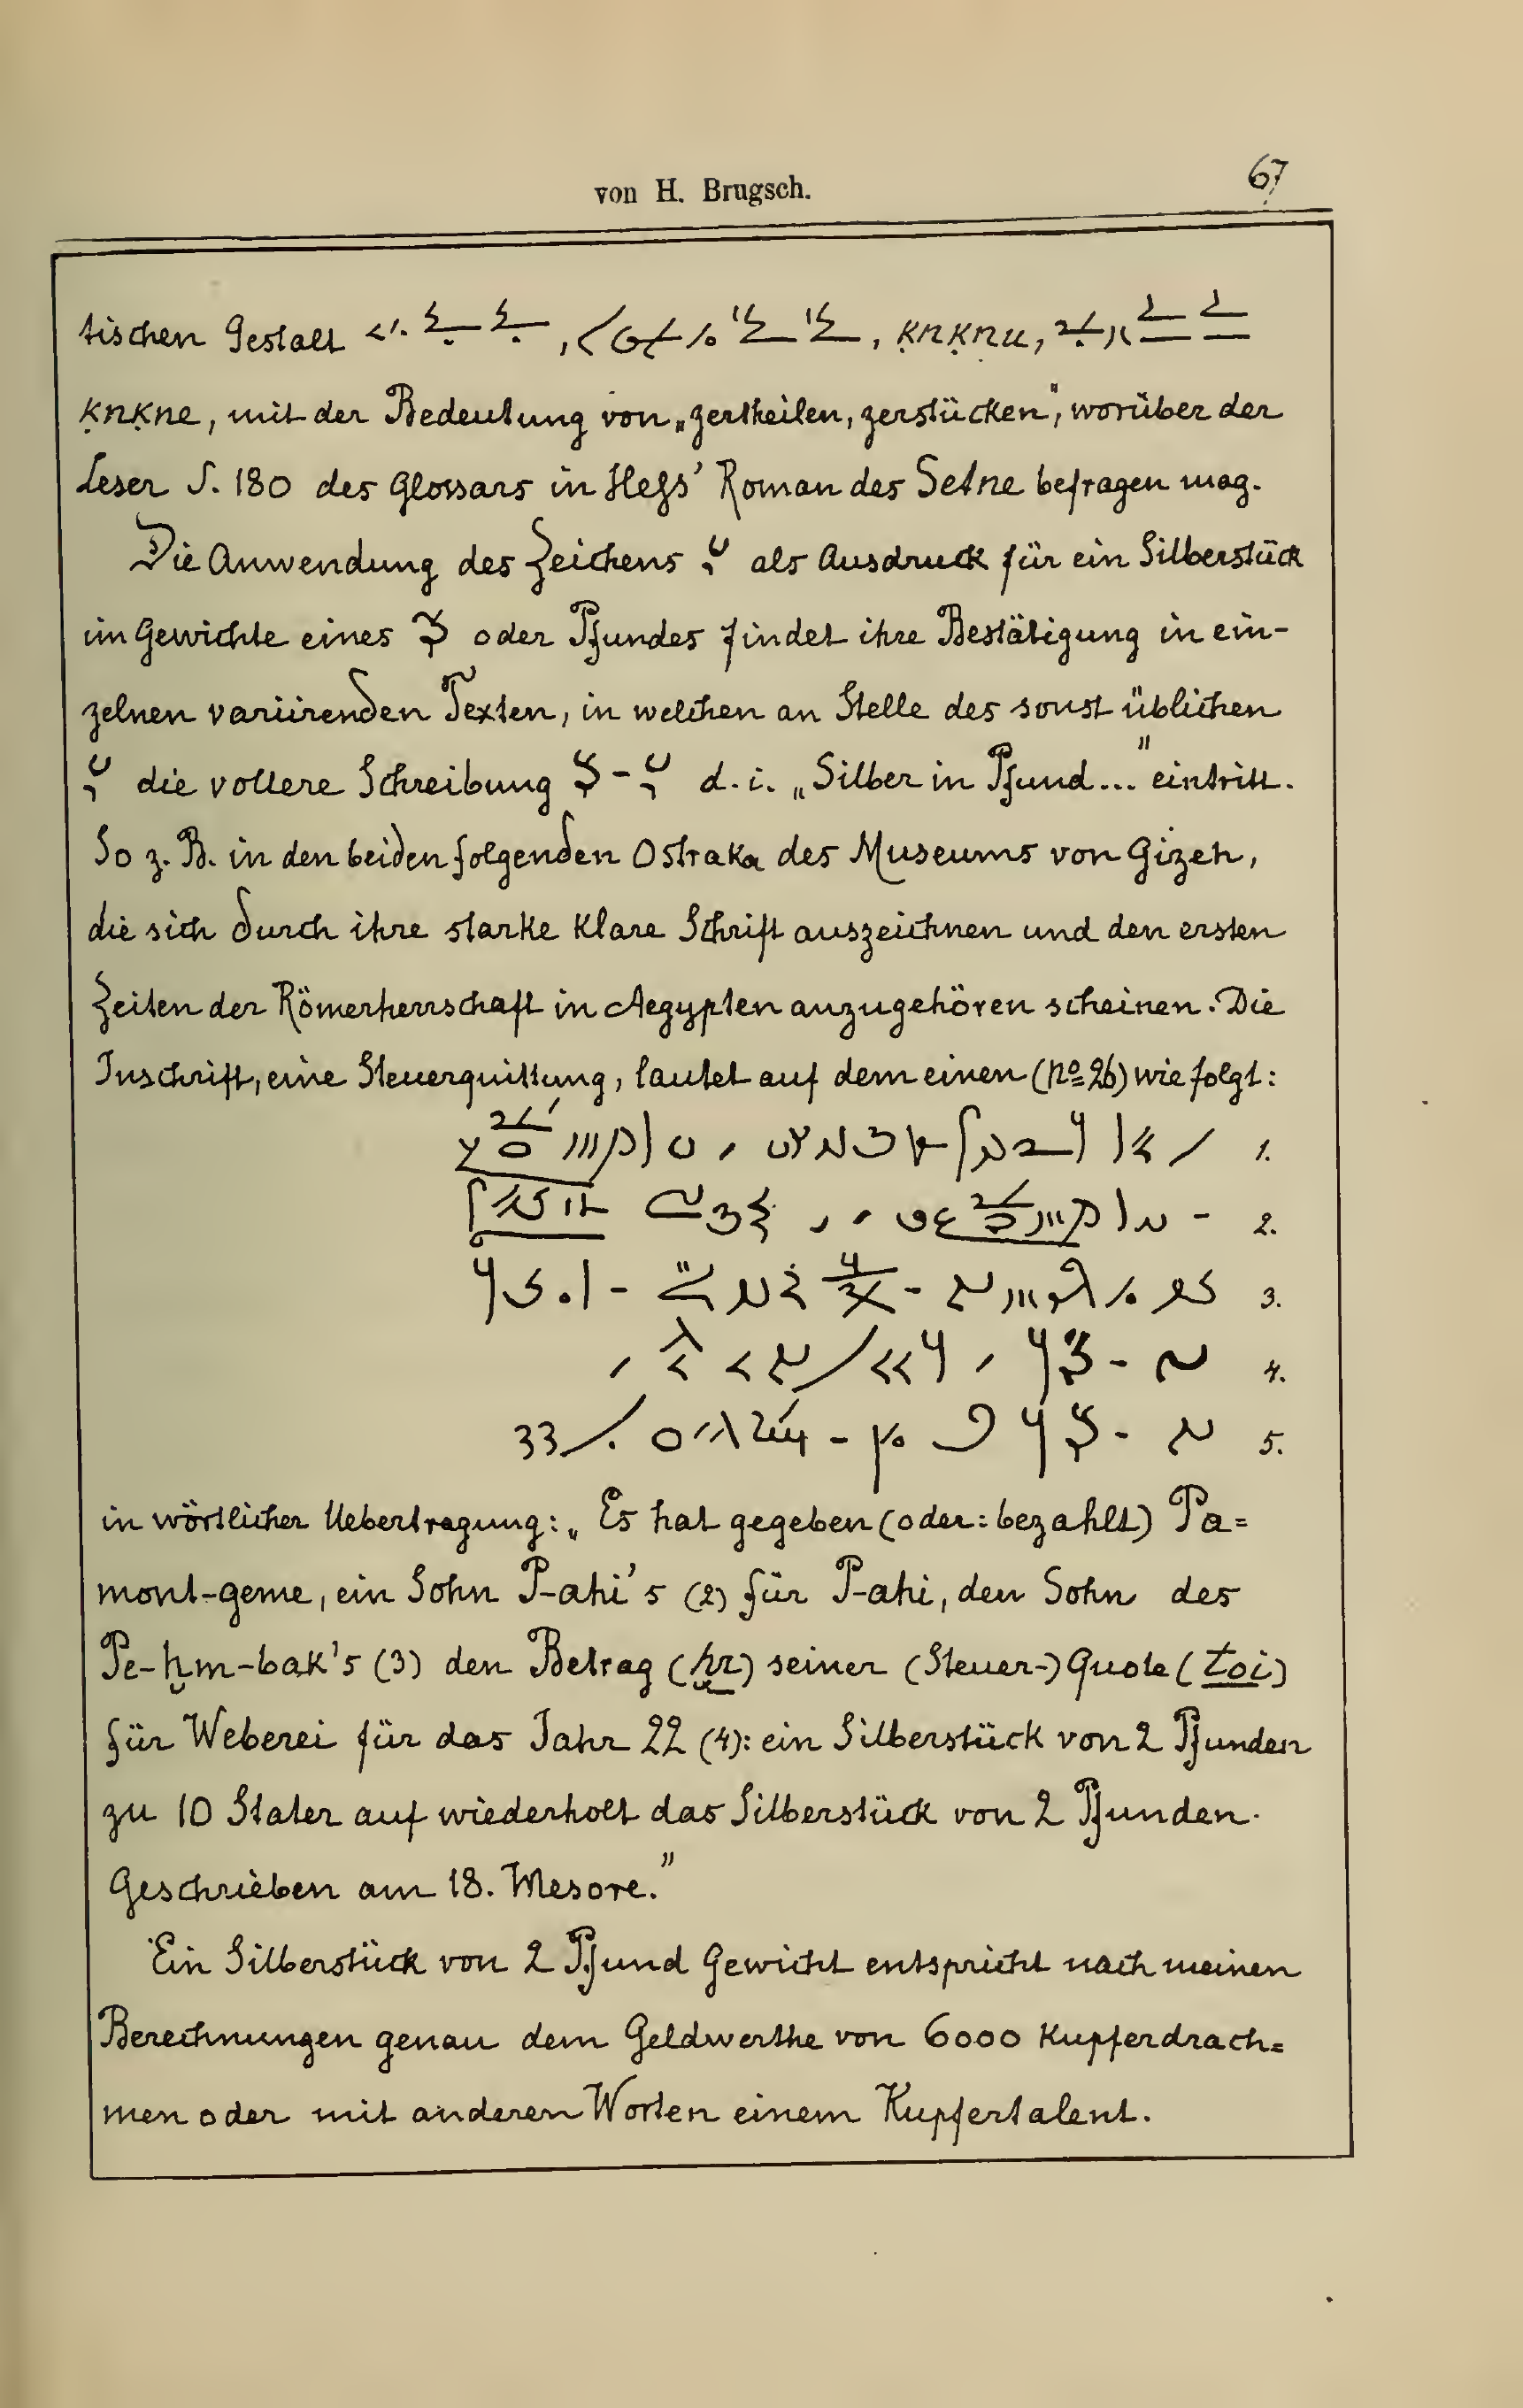 von H. Brugsch.
67
tischen Gestalt , , ḳnḳnu,
ḳnḳne, mit der Bedeutung von „zertheilen, zerstücken", worüber der
Leser S. 180 des Glossars in Heſs' Roman des Setne befragen mag.
Die Anwendung des Zeichens als Ausdruck für ein Silberstück
im Gewichte eines oder Pfundes findet ihre Bestätigung in ein-
zelnen variirenden Texten, in welchen an Stelle des sonst üblichen
die vollere Schreibung d. i. „Silber in Pfund..." eintritt.
So z. B. in den beiden folgenden Ostraka des Museums von Gizeh,
die sich durch ihre starke klare Schrift auszeichnen und den ersten
Zeiten der Römerherrschaft in Aegypten anzugehören scheinen. Die
Inschrift, eine Steuerquittung, lautet auf dem einen (No 26) wie folgt:
1.
2.
3.
4.
5.
in wörtlicher Uebertragung: „Es hat gegeben (oder: bezahlt) Pa=
mont-geme, ein Sohn P-ahi's (2) für P-ahi, den Sohn des
Pe-ḫm-bak's (3) den Betrag (ḫr) seiner (Steuer-) Quote (toi)
für Weberei für das Jahr 22 (4): ein Silberstück von 2 Pfunden
zu 10 Stater auf wiederholt das Silberstück von 2 Pfunden.
Geschrieben am 18. Mesore."
Ein Silberstück von 2 Pfund Gewicht entspricht nach meinen
Berechnungen genau dem Geldwerthe von 6000 Kupferdrach=
men oder mit anderen Worten einem Kupfertalent.